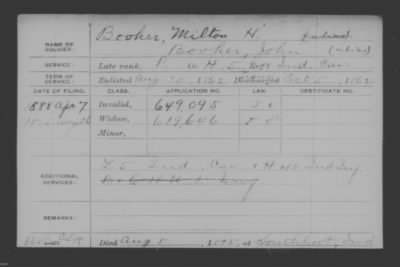 Booher, Milton H. (alias)
NAME OF SOLDIER: Booher, John (alias)
SERVICE: Late rank, P. Co H, 5, Regt Ind. Cav.
TERM OF SERVICE: Enlisted Aug 30, 1862 Discharged Oct 5, 1862
DATE OF FILING. CLASS. APPLICATION NO. LAW. CERTIFICATE NO.
1888 Apr 7 Invalid, 649,095
Widow, 619,646
Minor,
ADDITIONAL SERVICES:
5 Ind. Cav. & H 40 Ind Inf
REMARKS:
Died Aug 8, at Southport, Ind